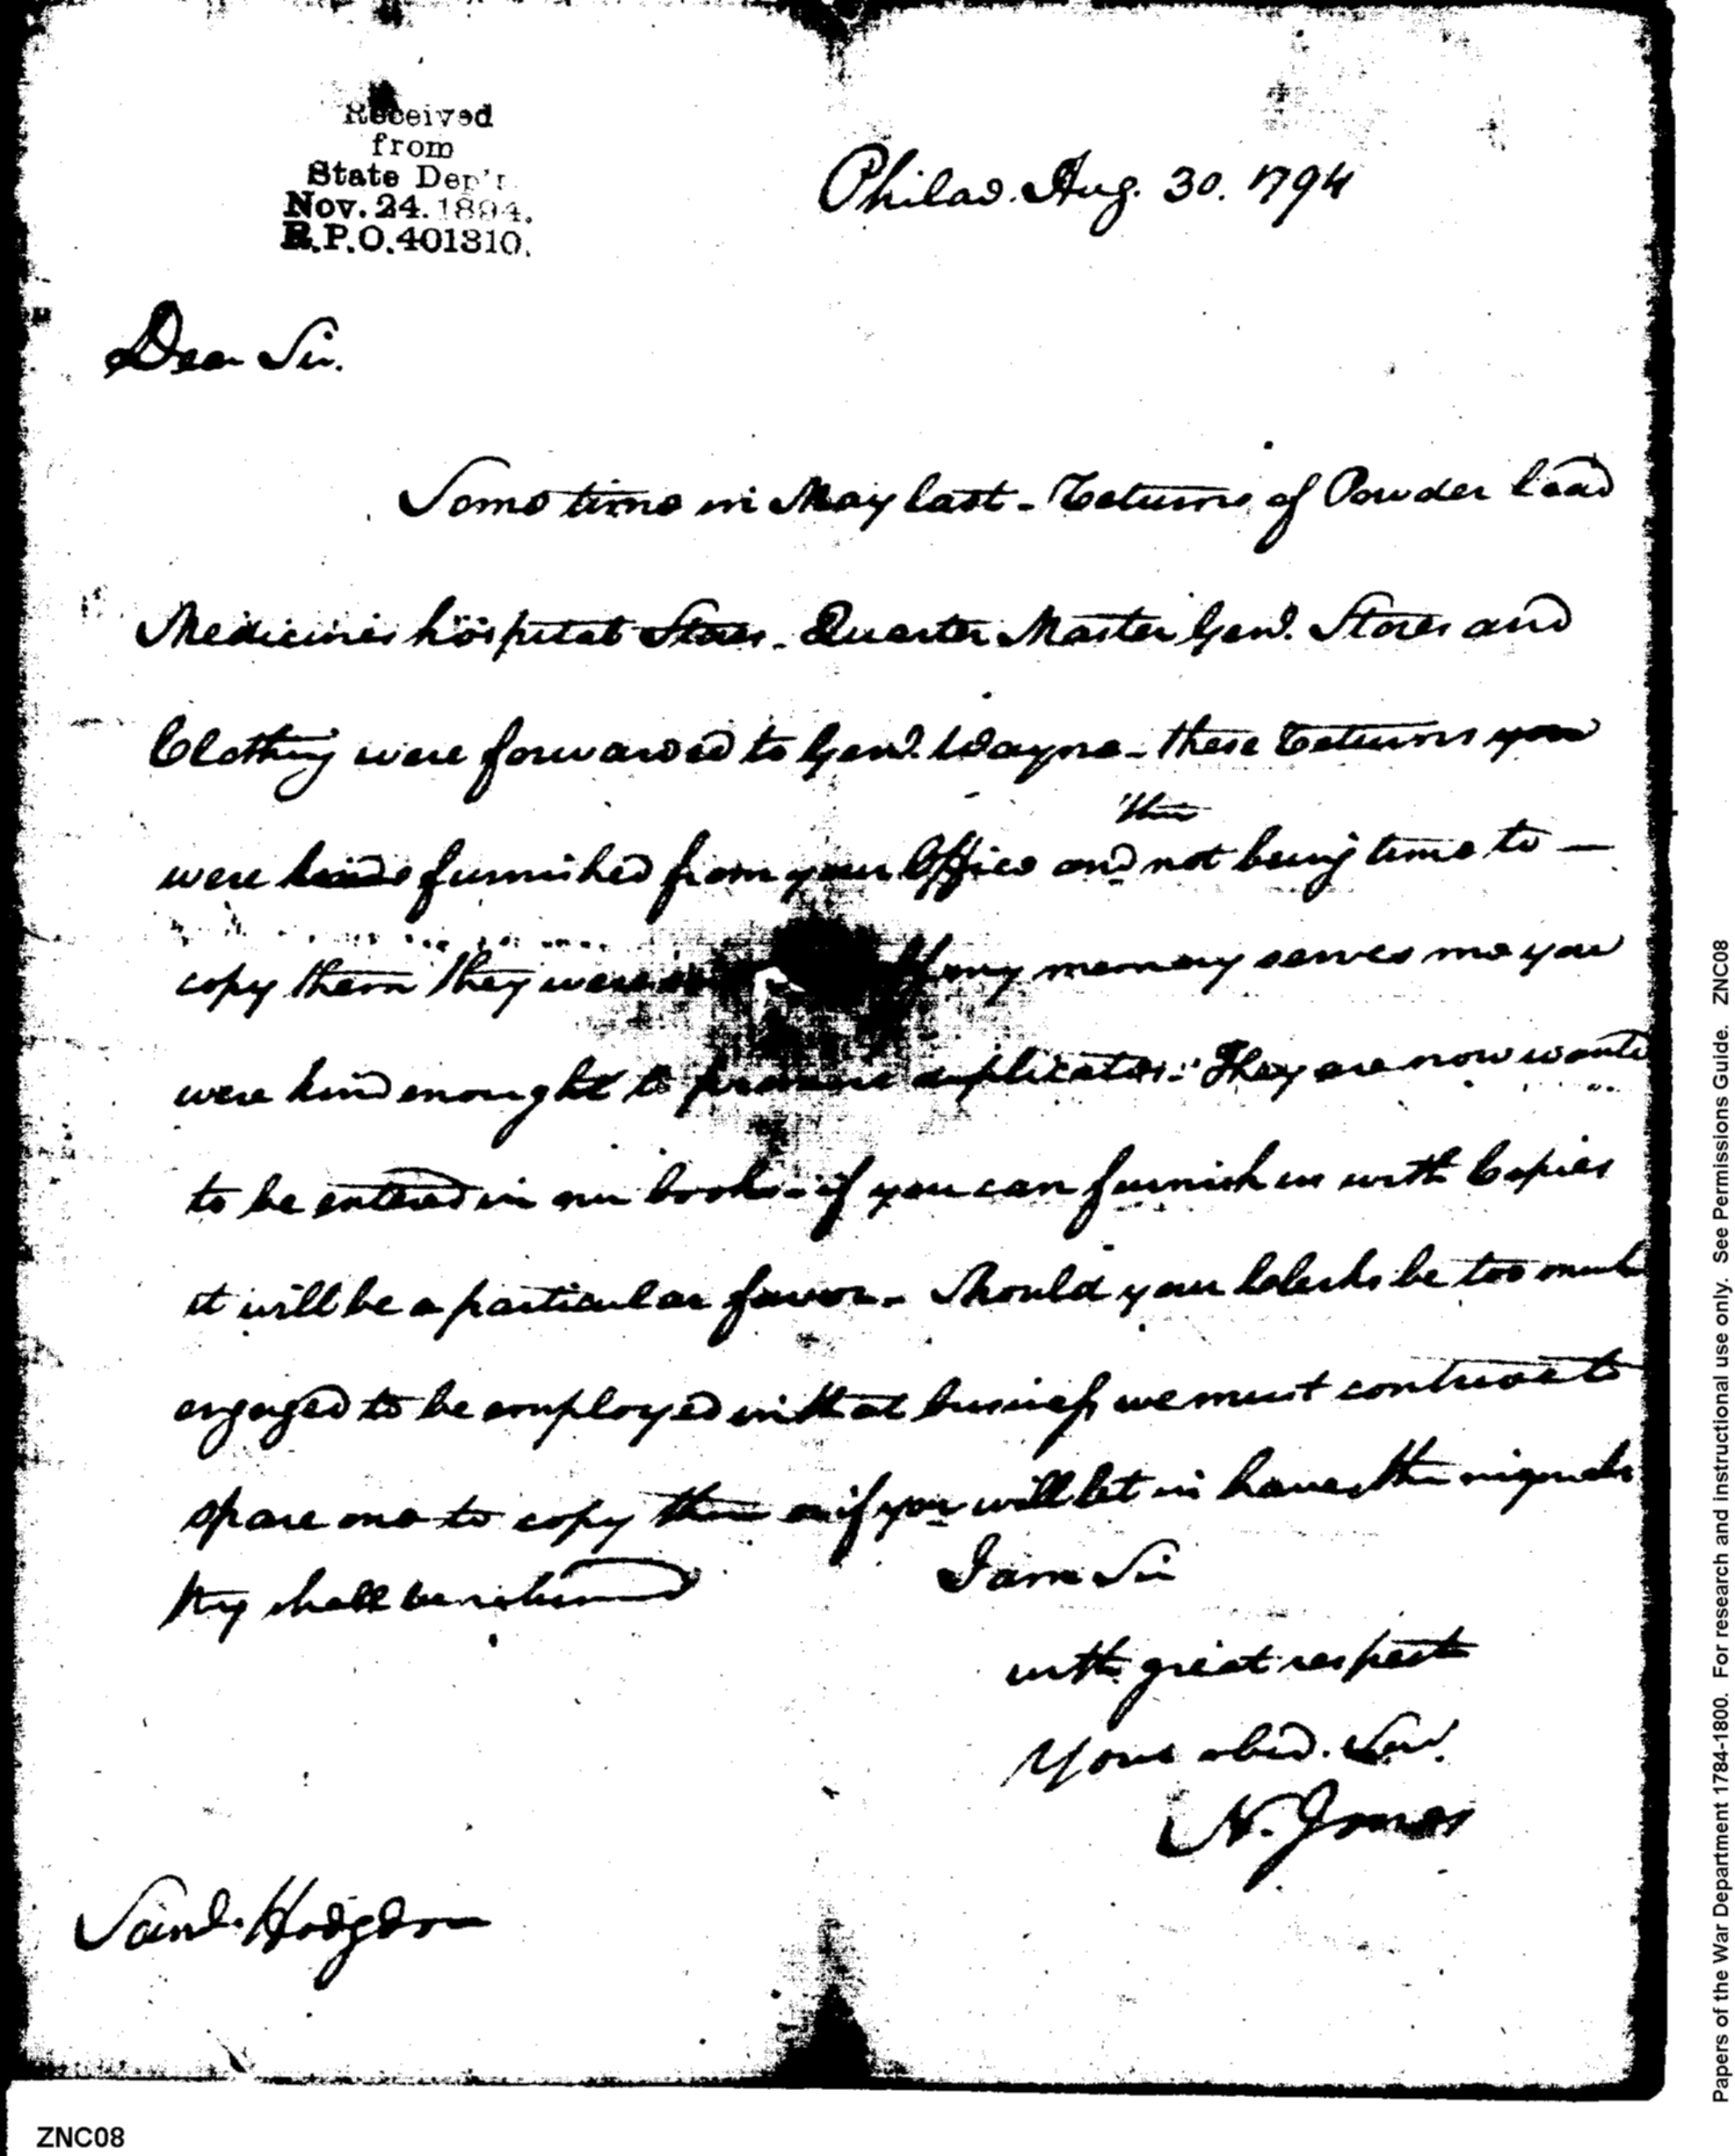 Received
from
State Dep't.
Nov. 24. 1894.
R.P.O. 401310.
Philad. Aug. 30. 1794
Dear Sir.
Some time in May last - Returns of Powder lead
Medicines hospital Stores - Quarter Master Genl. Stores and
Clothing were forwarded to Genl. Wayne - these returns you
there
were furnished from your Office and not being time to —
copy them they were If my memory serves me you
were kind enought to duplicates. They are now wanted
to be entered in our books - if you can furnish us with Copies
it will be a particular favor - Should your Clerks be too much
engaged to be employed in that business we must contrive to
spare one to copy them or if you will let us have the originals
they shall be returned
I am Sir
with great respect
Your obed. Serv.
N. Jones
Saml. Hodgdon
Papers of the War Department 1784-1800. For research and instructional use only. See Permissions Guide. ZNC08
ZNC08